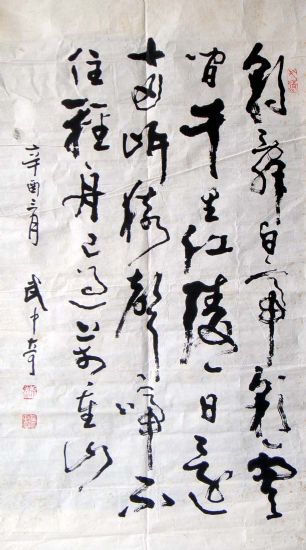 朝辭白帝彩雲
間千里江陵一日還
兩岸猿聲啼不
住輕舟已過萬重山
辛酉三月 武中奇